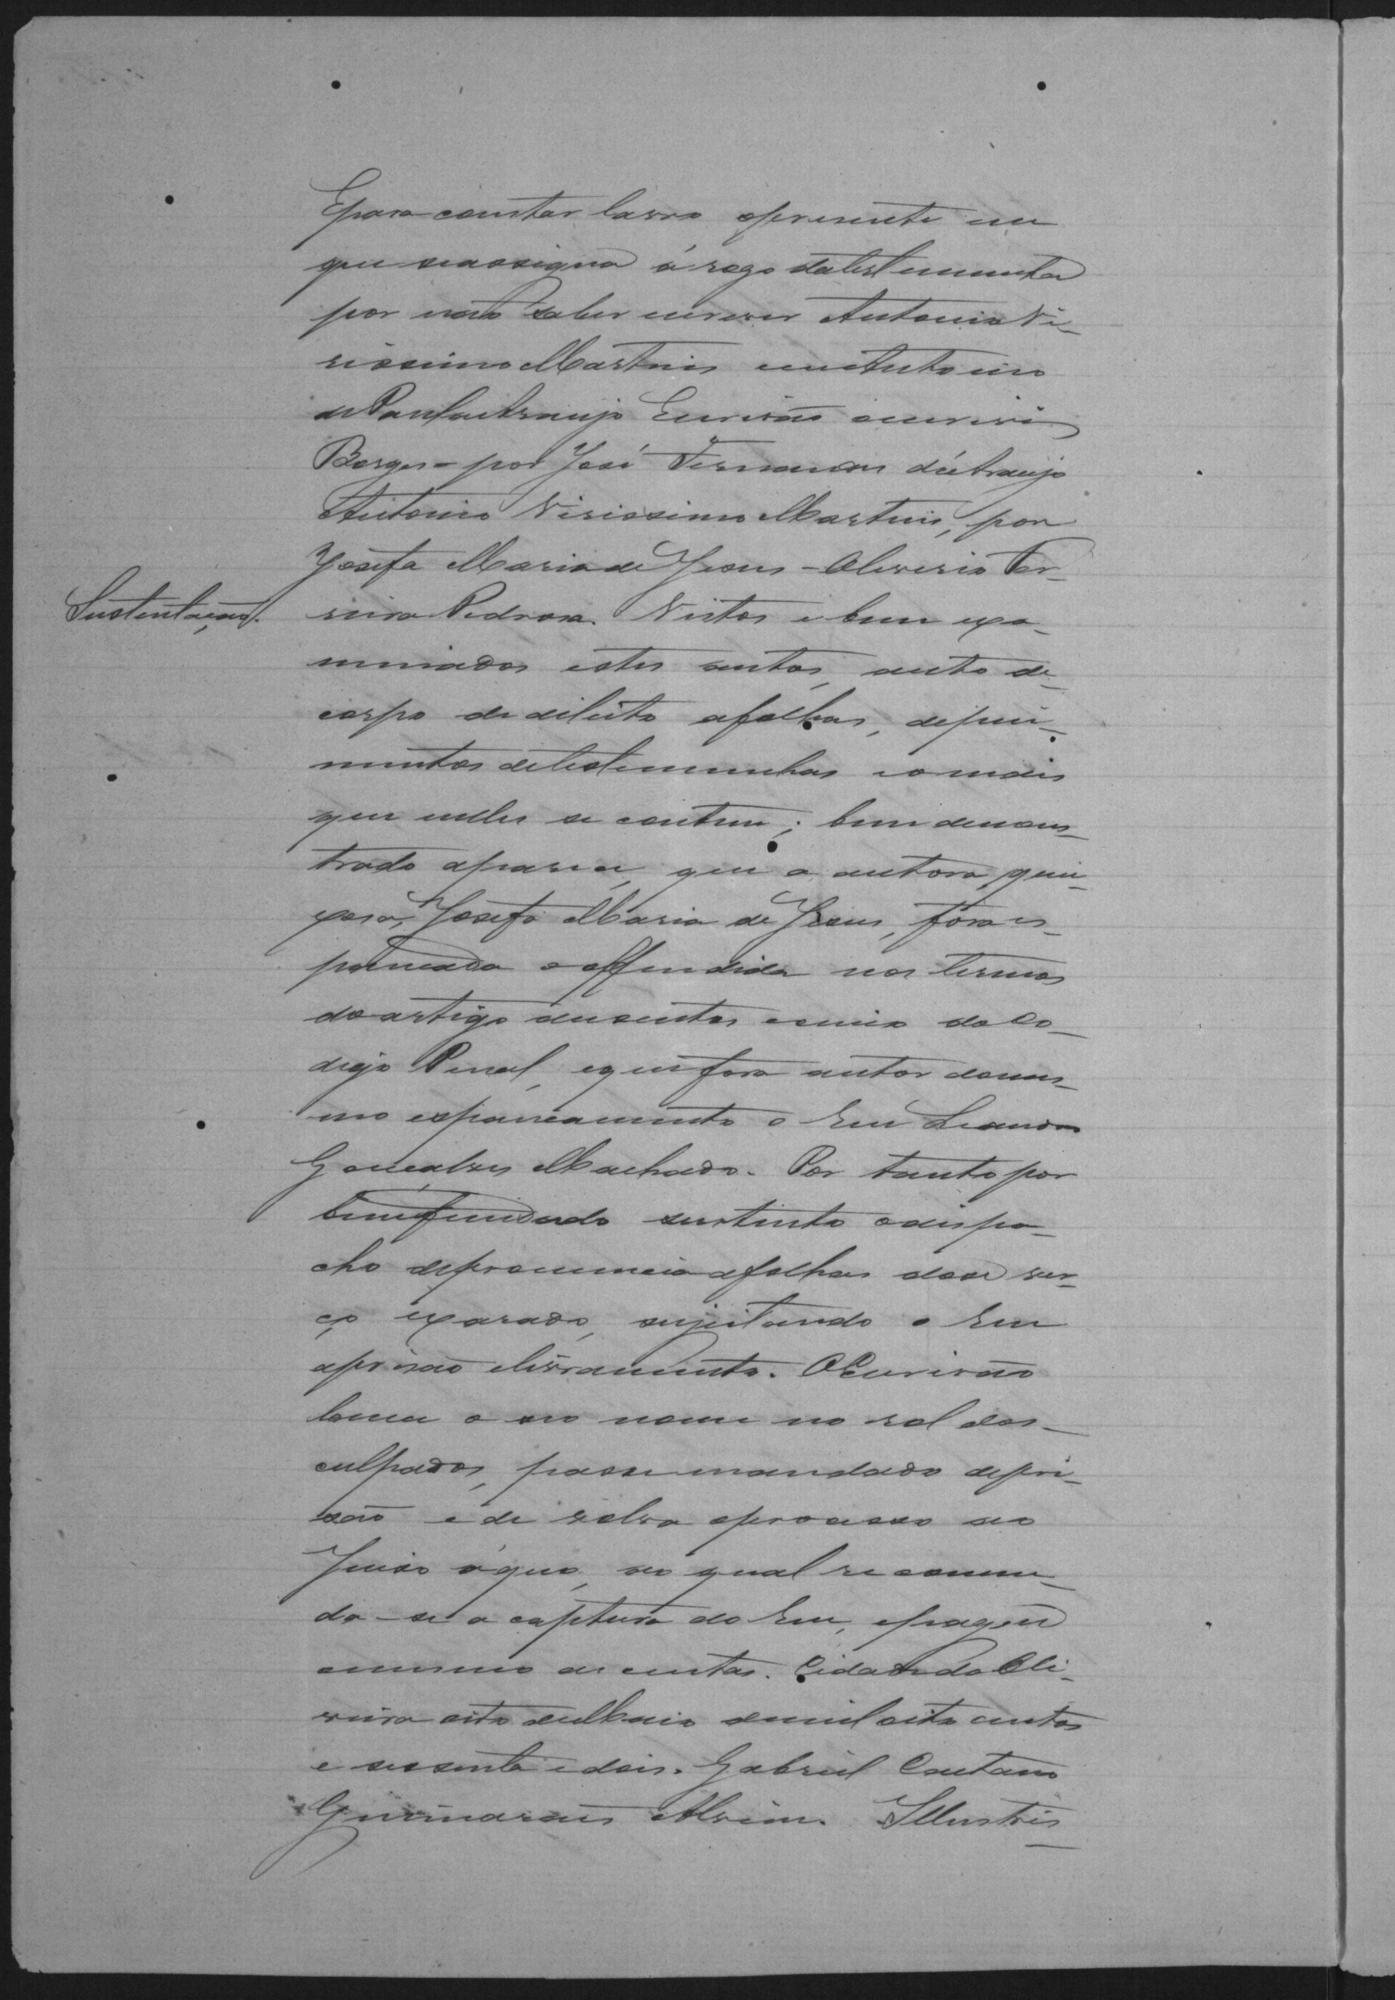 E para constar lavro o presente em
que se assigna á rogo da testemunha
por não saber escrever Antonio Ve-
rissimo Martins eu Antonio
de Paula Araujo Escrivão o escrevi
Borges - por José Fernandes de Araujo
Antonio Virissimo Martins, por
Josefa Maria de Jesus - Oliverio Fer-
Sustentação.
reira Pedrosa. Vistos e bem exa-
minados estes autos, auto de
corpo de delicto a folhas, depoi-
mentos de testemunhas e o mais
que nelles se contem; bem demons-
trado aparece, que a autora quei-
xosa, Josefa Maria de Jesus, fora es-
pancada e offendida nos termos
do artigo dusentos e um do Co-
digo Penal, e que fora autor do mes-
mo espancamento o Reu Leandro
Gonçalves Machado. Por tanto por
bem fundado sustento o dispa-
cho de pronuncia a folhas dose ver-
ço exarado, sujeitando o Reu
a prisão e livramento. O Escrivão
lance o seo nome no rol dos
culpados, passe mandado de pri-
são e de volva o processo ao
Juiso á quo, ao qual recomen-
da-se a captura do Reu, e pague
o mesmo as custas. Cidade da Oli-
veira oito de Maio de mil oito centos
e sessenta e dois. Gabriel Caetano
Guimaraens Alvim. Illustris-